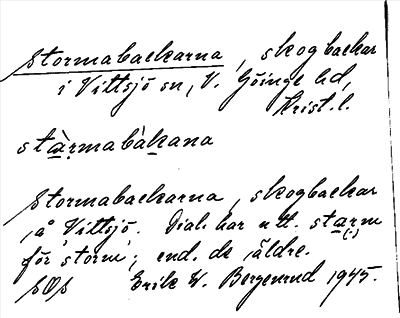 Stormabackarna, skogbackar
i Vittsjö sn, V. Göinge hd,
Krist. l.
stàrmabàkana
Stormabackarna, skogbackar
å Vittsjö. Dial. har utt. starm
för 'storm'; end. de äldre.
Erik W. Bergenrud 1945.